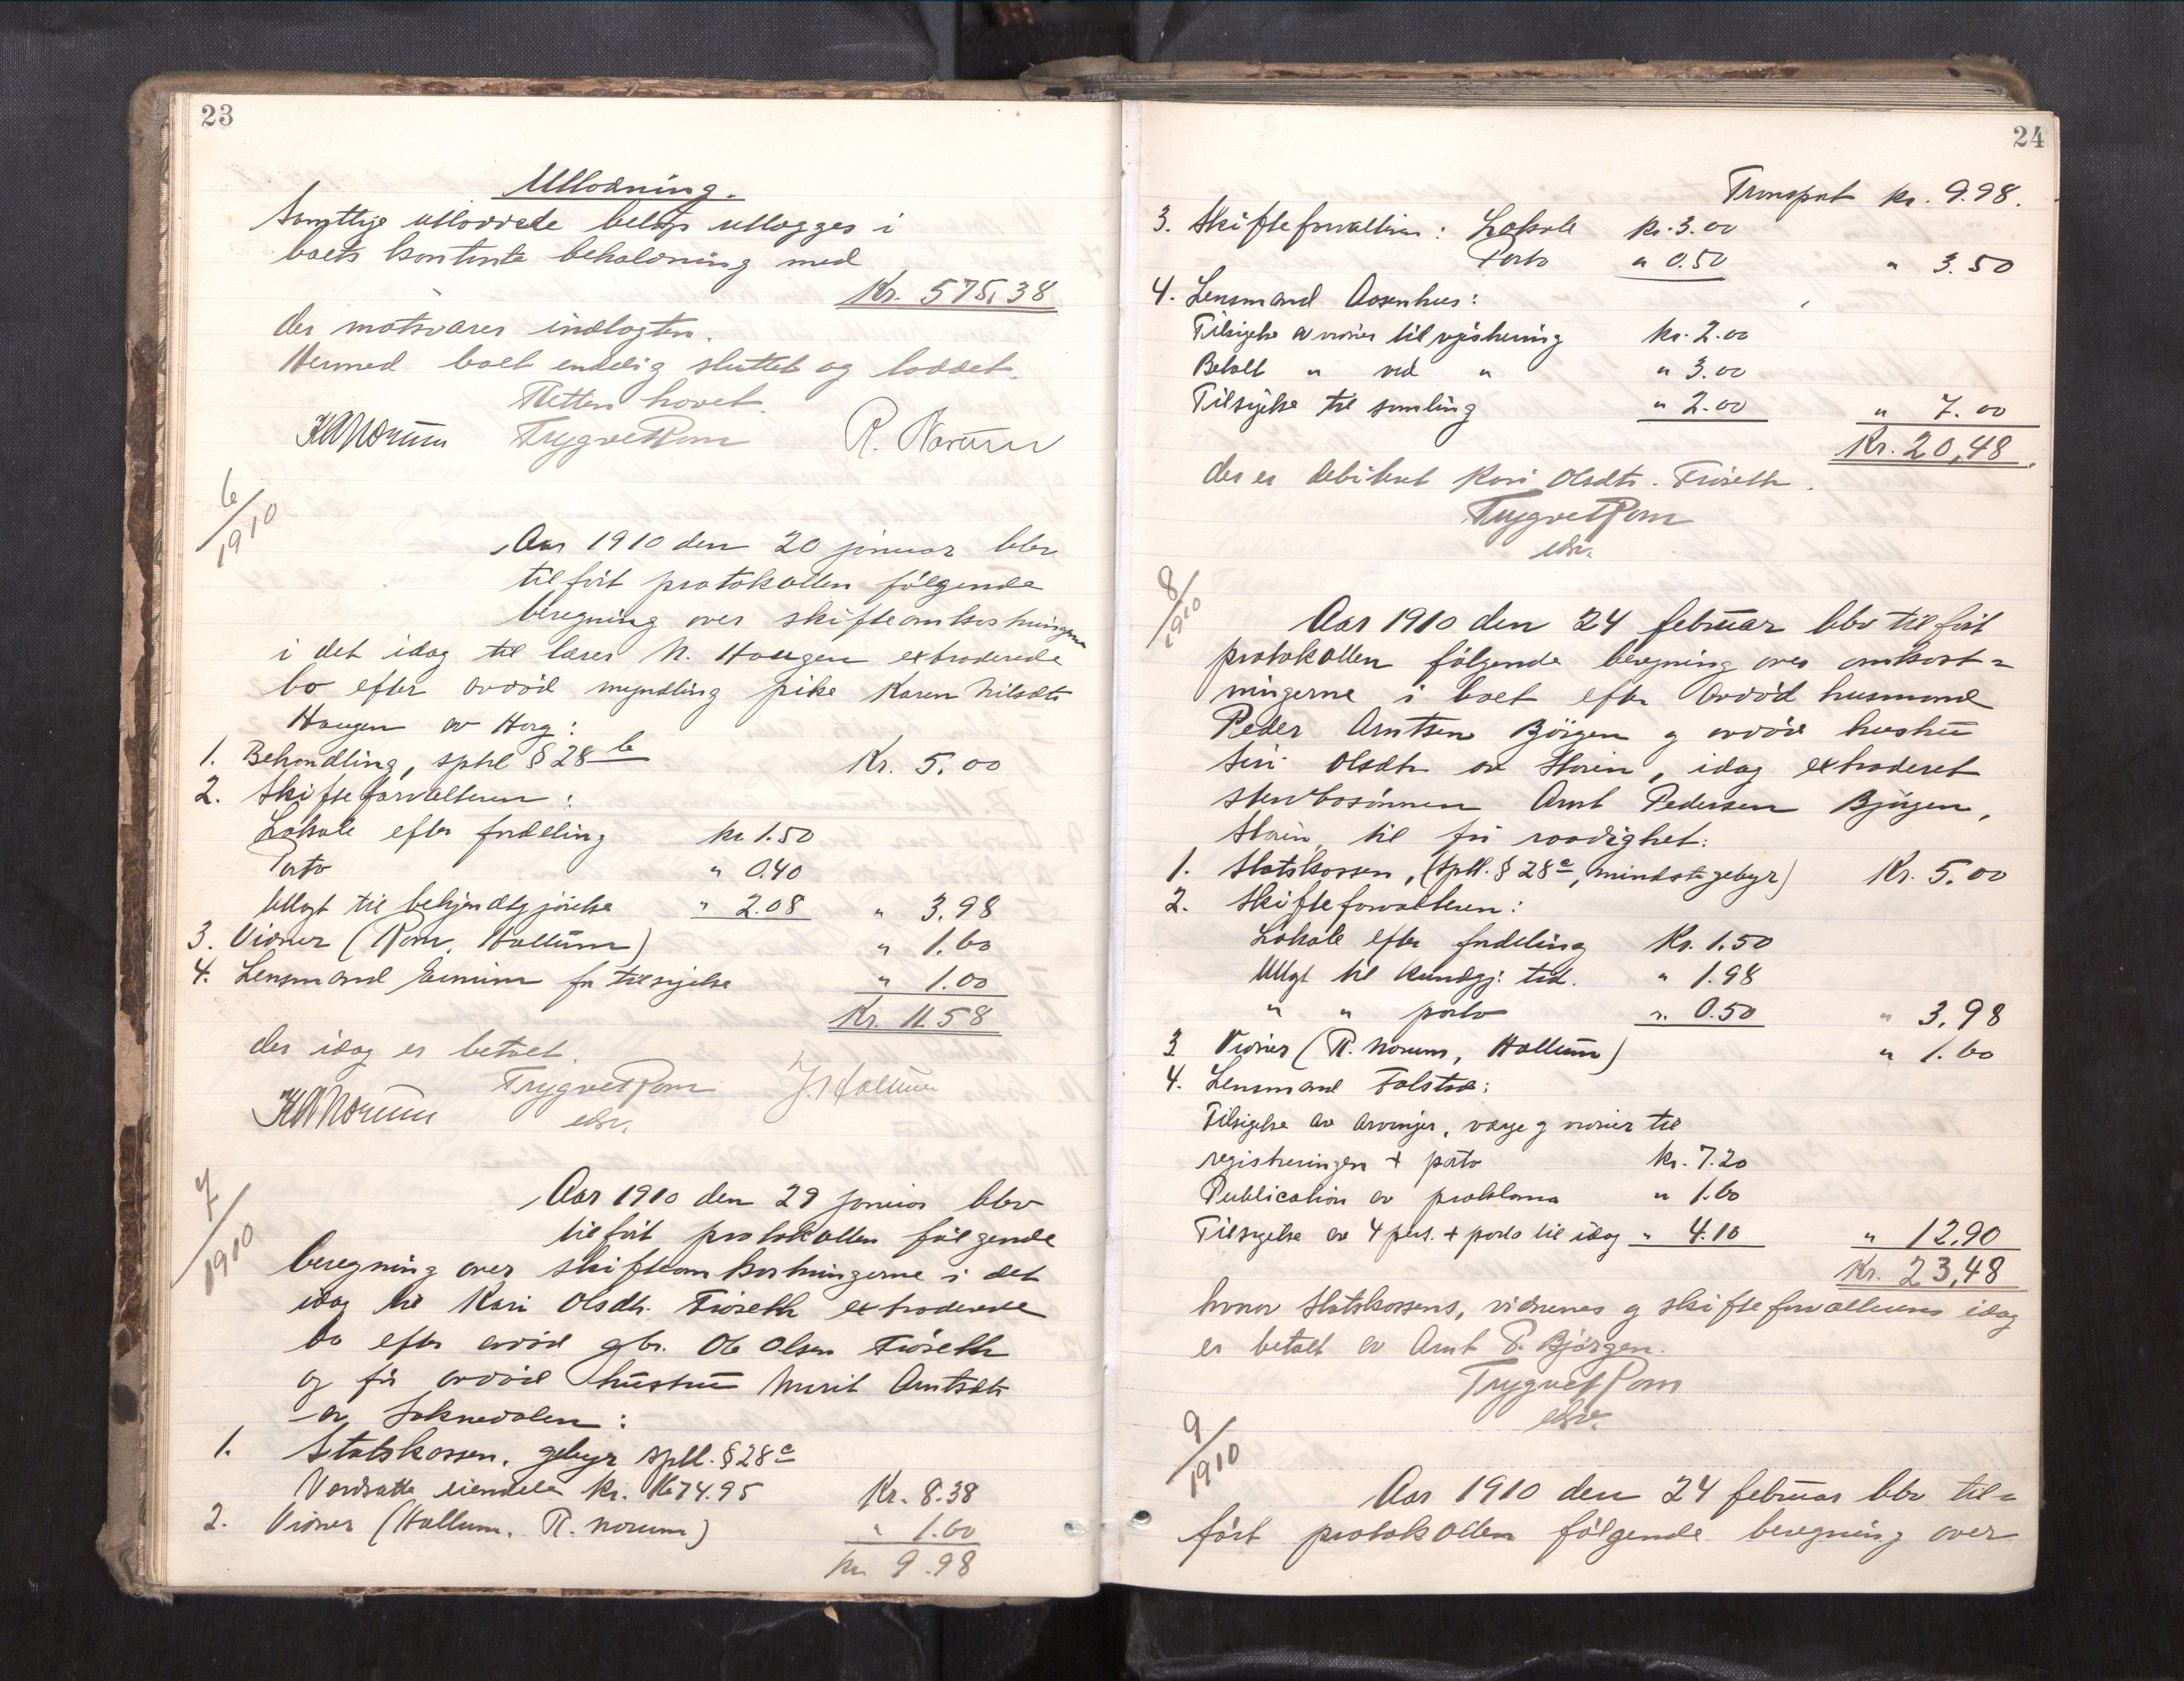 23
Utlodning.
Samtlige utlodde beløp utlægges i
boets kontante beholdning med
Kr. 575,38
der motsvarer indtægten.
Hermed boet endelig sluttet og loddet.
Retten hævet.
Trygve Rom R. Norum
6/1910
Aar 1910 den 20 januar blev
tilført protokollen følgende
beregning over skifteomkostningerne
i det idag til lærer N. Haugen extraderede
bo efter avdød myndling pike Karen Nilsdtr
Haugen av Horg:
1. Behandling, sptl § 28 b Kr. 5.00
2. Skifteforvalteren:
Lokale efter fordeling kr 1.50
Porto " 0.40
Utlagt til bekjendtgjørelse " 2.08 " 3.98
3. Vidner (Rom, Hallum) " 1.60
4. Lensmand for tilsigelse " 1.00
Kr. 11.58
der idag er betalt.
Trygve Rom J. Hallum
edsv.
7/1910
Aar 1910 den 29 januar blev
tilført protokollen følgende
beregning over skifteomkostningerne i det
idag til Kari Olsdtr. Frøseth extraderede
bo efter avdød gbr. Ole Olsen Frøseth
og før avdød hustru Marit Arntsdtr
av Soknedalen:
1. Statskassen, gebyr sptl. § 28 c
Værdsatte eiendele kr. 1674.95 Kr. 8.38
2. Vidner (Hallum, R. Norum) " 1.60
Kr. 9.98
24
Transport kr. 9.98.
3. Skifteforvalteren: Lokale kr. 3.00
Porto " 0.50 " 3.50
4. Lensmand Aasenhus:
Tilsigelse av vidner til registrering kr. 2.00
Betalt " ved " " 3.00
Tilsigelse til samling " 2.00 " 7.00
Kr. 20,48.
der er debiteret Kari Olsdtr. Frøseth.
Trygve Rom
edsv.
8/1910
Aar 1910 den 24 februar blev tilført
protokollen følgende beregning over omkost-
ningerne i boet efter avdød husmand
Peder Arntsen Bjørgen og avdød hustru
Siri Olsdtr av Støren, idag extraderet
stervbosønnen Arnt Pedersen Bjørgen,
Støren, til fri raadighet:
1. Statskassen, (sptl. § 28 c, mindste gebyr) Kr. 5.00
2. Skifteforvalteren:
Lokale efter fordeling Kr. 1.50
Utlagt til Kundgj: tid. " 1.98
" " porto " 0.50 " 3.98
3 Vidner (R. Norum, Hallum) " 1.60
4. Lensmand Folstad:
Tilsigelse av arvinger, værge og vidner til
registreringen + porto kr. 7.20
Publication av proklama " 1.60
Tilsigelse av 4 pers. + porto til idag " 4.10 " 12.90
Kr. 23,48
hvorav Statskassens, vidnenes og skifteforvalterens idag
er betalt av Arnt P. Bjørgen.
Trygve Rom
edsv.
9/1910
Aar 1910 den 24 februar blev til-
ført protokollen følgende beregning over